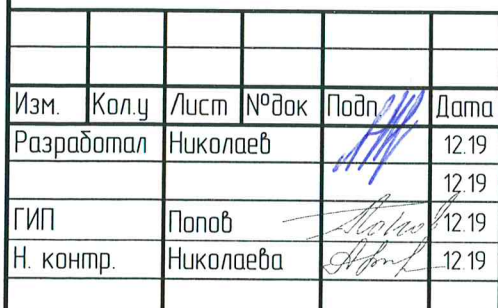 Изм. Кол.у Лист №док Подп Дата
Разработал Николаев 12.19
12.19
ГИП Попов 12.19
Н. контр. Николаева 12.19